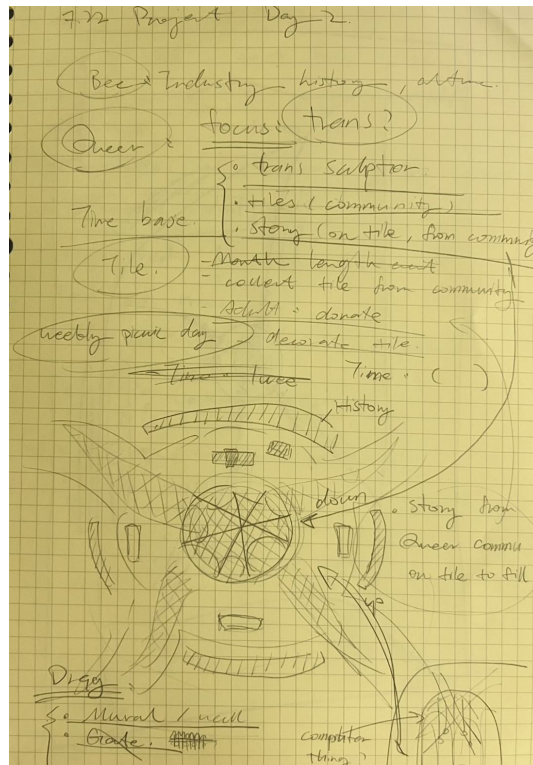 7.22 Project Day 2.
Bee: Industry history,
Queer: focus: trans?
• trans sculptior
• tiles (community)
Time base.
• story (on tile, from communit
Tile.
- Month length
- collect tile from community
- Adult: donate
weebly picnic day
decorate tile.
Time:
Time: ( )
History
down
• story from
Queer commu
on tile to fill
up
Drag
• Mural / wall
• Gate.
thing?